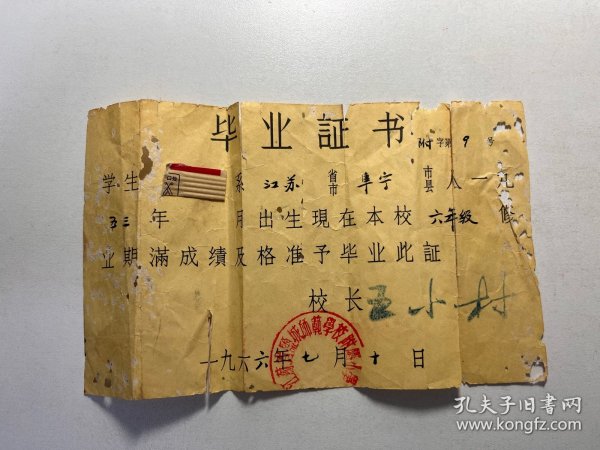 毕业証书
附字第9号
学生 系江苏省市阜宁市县人一九
五三年 月出生現在本校六年級修
业期滿成績及格准予毕业此証
校长 王小村
一九六六年七月十日
孔夫子旧书网
www.kongfz.com